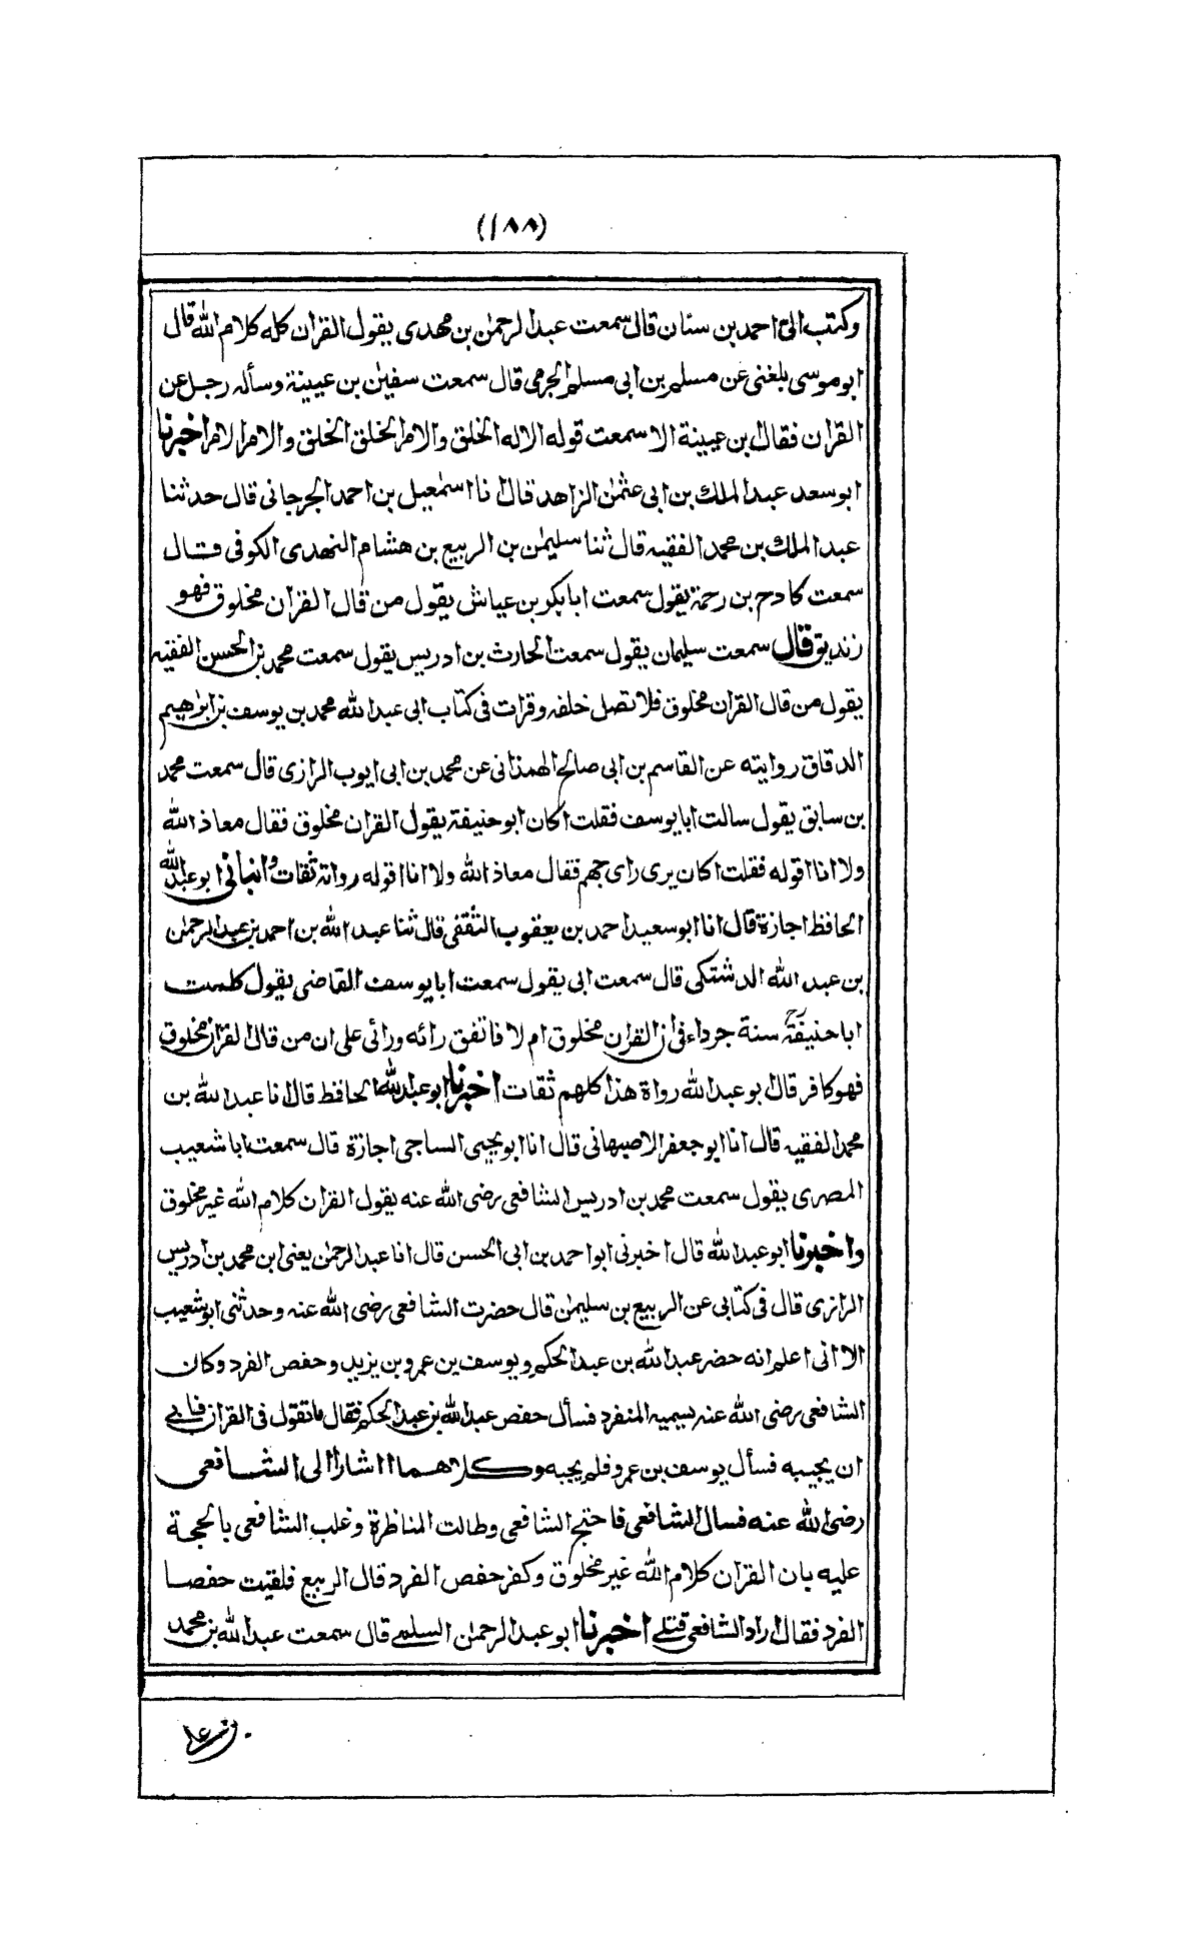 (١٨٨)
وكتب الىّ احمد بن سنان قال سمعت عبد الرحمٰن بن مهدى يقول القران كله كلام الله قال
ابو موسى بلغنى عن مسلم بن ابى مسلم الجرمى قال سمعت سفيٰن بن عيينة وسأله رجل عن
القران فقال ابن عيينة الا سمعت قوله الا له الخلق والامر الخلق الخلق والامر الامر اخبرنا
ابو سعد عبد الملك بن ابى عثمٰن الزاهد قال انا اسمٰعيل بن احمد الجرجانى قال حدثنا
عبد الملك بن محمد الفقيه قال ثنا سليمٰن بن الربيع بن هشام النهدى الكوفى قال
سمعت كادح بن رحمة يقول سمعت ابا بكر بن عياش يقول من قال القران مخلوق فهو
زنديق قال سمعت سليمان يقول سمعت الحارث بن ادريس يقول سمعت محمد بن الحسن الفقيه
يقول من قال القران مخلوق فلا تصل خلفه وقرات فى كتاب ابى عبد الله محمد بن يوسف بن ابرٰهيم
الدقاق روايته عن القاسم بن ابى صالح الهمذانى عن محمد بن ابى ايوب الرازى قال سمعت محمد
بن سابق يقول سالت ابا يوسف فقلت اكان ابو حنيفة يقول القران مخلوق فقال معاذ الله
ولا انا اقوله فقلت اكان يرى راى جهم فقال معاذ الله ولا انا اقوله رواته ثقات وانبانى ابو عبد الله
الحافظ اجازة قال انا ابو سعيد احمد بن يعقوب الثقفى قال ثنا عبد الله بن احمد بن عبد الرحمٰن
بن عبد الله الدشتكى قال سمعت ابى يقول سمعت ابا يوسف القاضى يقول كلمت
ابا حنيفة رح سنة جرداء فى ان القران مخلوق ام لا فاتفق رائه ورائى على ان من قال القران مخلوق
فهو كافر قال ابو عبد الله رواة هذا كلهم ثقات اخبرنا ابو عبد الله الحافظ قال انا عبد الله بن
محمد الفقيه قال انا ابو جعفر الاصبهانى قال انا ابو يحيى الساجى اجازة قال سمعت ابا شعيب
المصرى يقول سمعت محمد بن ادريس الشافعى رضى الله عنه يقول القران كلام الله غير مخلوق
واخبرنا ابو عبد الله قال اخبرنى ابو احمد بن ابى الحسن قال انا عبد الرحمٰن يعنى ابن محمد بن ادريس
الرازى قال فى كتابى عن الربيع بن سليمٰن قال حضرت الشافعى رضى الله عنه وحدثنى ابو شعيب
الا انى اعلم انه حضر عبد الله بن عبد الحكم ويوسف بن عمرو بن يزيد وحفص الفرد وكان
الشافعى رضى الله عنه يسميه المنفرد فسأل حفص عبد الله بن عبد الحكم فقال ما تقول فى القران فابى
ان يجيبه فسأل يوسف بن عمرو فلم يجبه وكلاهما اشارا الى الشافعى
رضى الله عنه فسال الشافعى فاحتج الشافعى وطالت المناظرة وغلب الشافعى بالحجة
عليه بان القران كلام الله غير مخلوق وكفر حفص الفرد قال الربيع فلقيت حفصا
الفرد فقال اراد الشافعى قتلى اخبرنا ابو عبد الرحمٰن السلمى قال سمعت عبد الله بن محمد